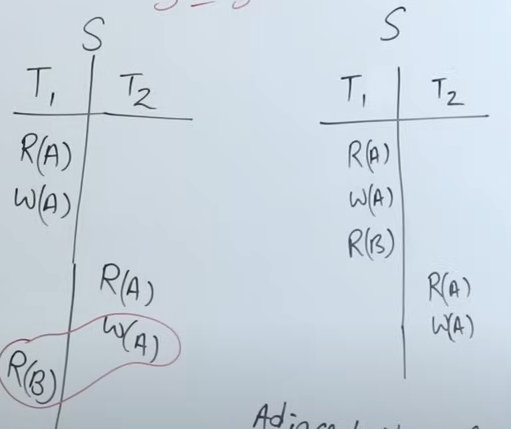 S
T1 T2
R(A)
W(A)
R(A)
W(A)
R(B)
S
T1 T2
R(A)
W(A)
R(B)
R(A)
W(A)